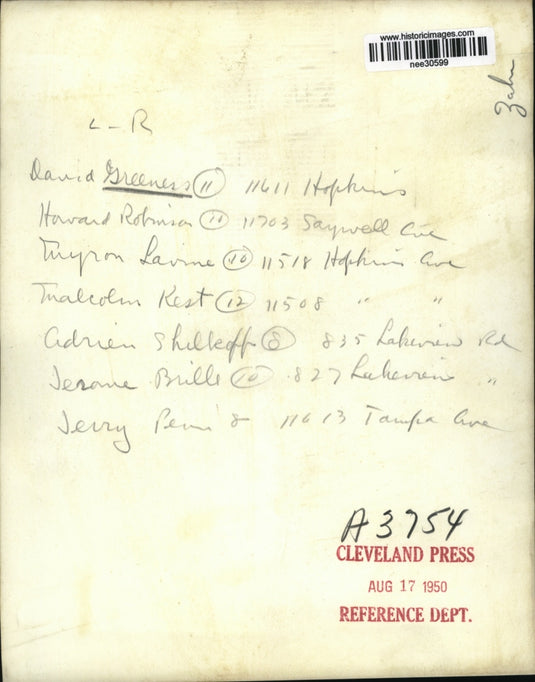 www.historicimages.com
nee30599
Zahn
L-R
David Greeness 11 11611 Hopkins
Howard Robinson 11 11703 Saywell Ave
Myron Lavine 10 11518 Hopkins Ave
Malcolm Kest 12 11508 " "
Adrien Shilkoff 8 835 Lakeview Rd
Jerome Brille 10 827 Lakeview "
Jerry 8 11613 Tampa Ave
A3754
CLEVELAND PRESS
AUG 17 1950
REFERENCE DEPT.